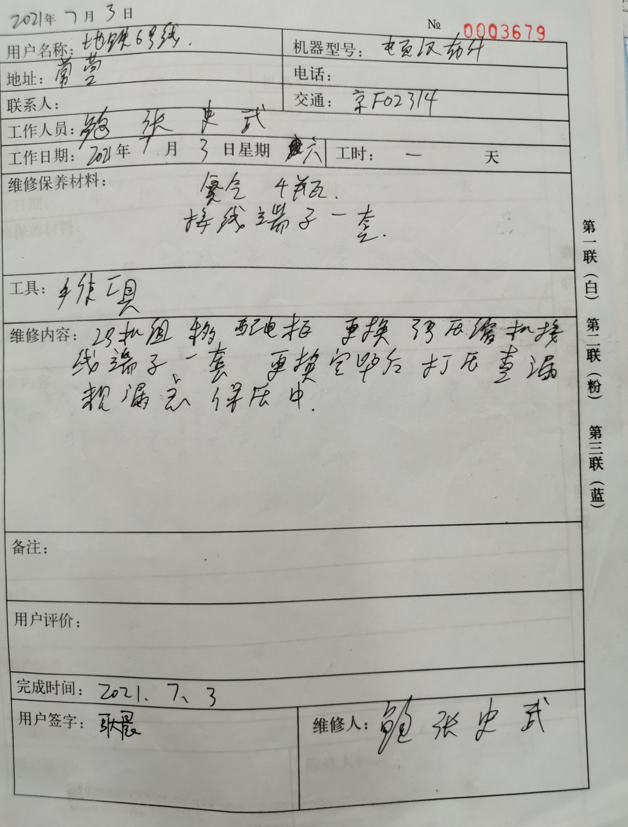 2021年7月3日
№ 0003679
用户名称：地铁6号线.
机器型号：
地址：常营
电话：
联系人：
交通：京F02314
工作人员：鲍 张 史 武
工作日期：2021年7月3日星期六
工时：一 天
维修保养材料：氮气 4瓶.
接线端子一套.
工具：手使工具
维修内容：2号机组 移 配电柜 更换 1号压缩机接
线端子一套 更换完毕后 打压查漏
保压中.
备注：
用户评价：
完成时间：2021.7、3
用户签字：耿晨
维修人：鲍 张 史 武
第一联（白） 第二联（粉） 第三联（蓝）